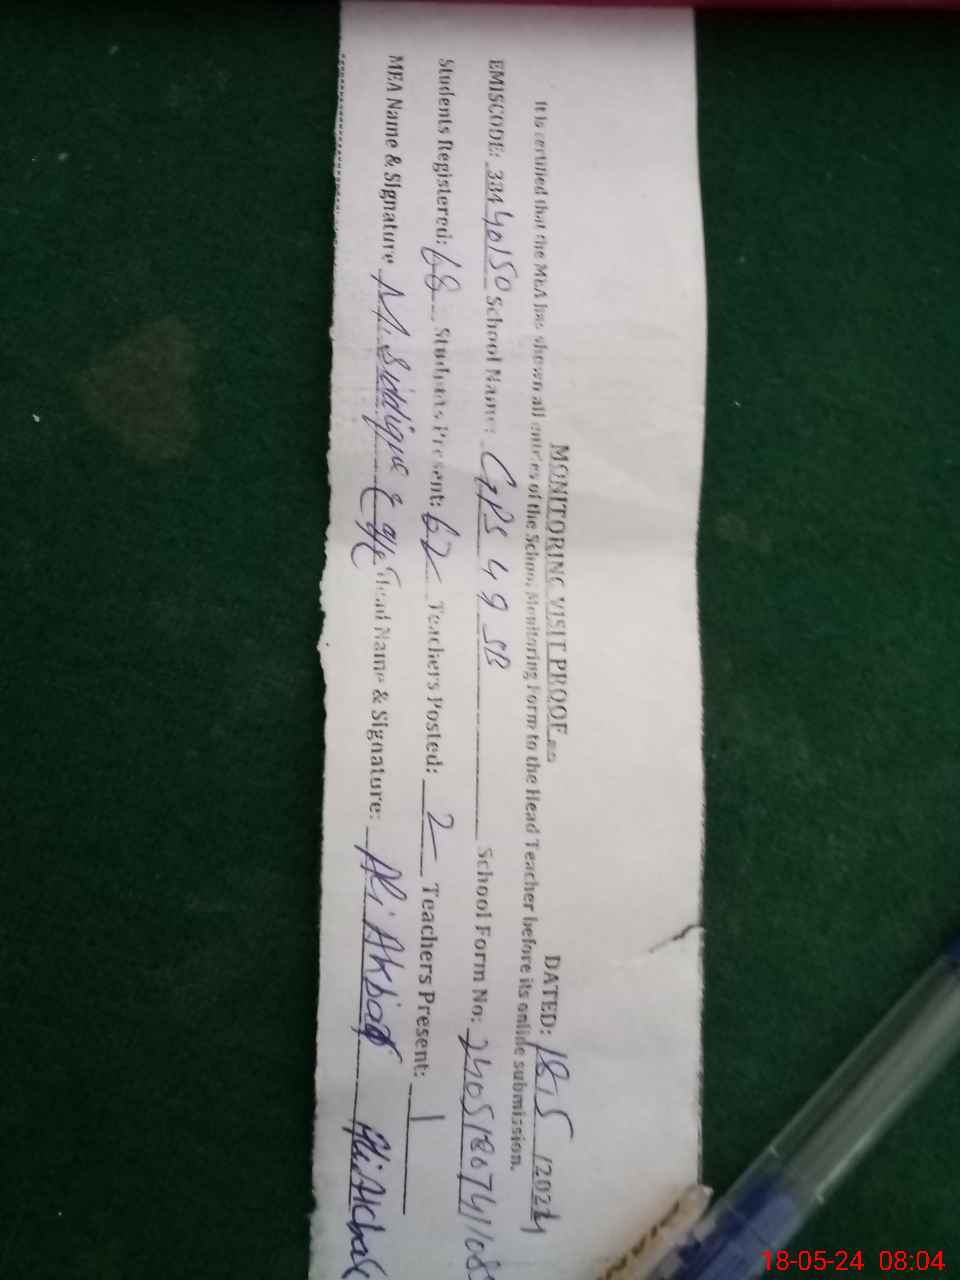 MONITORING VISIT PROOF
DATED: 18-5/2024
It is certified that the MEA has shown all entries of the School Monitoring Form to the Head Teacher before its online submission.
EMISCODE: 33440150 School Name: GPS 49 SB School Form No:
Students Registered: 68 Students Present: 62 Teachers Posted: 2 Teachers Present: 1
MEA Name & Signature M. Siddique Head Name & Signature: Ali Akbar Ali Akbar
18-05-24 08:04